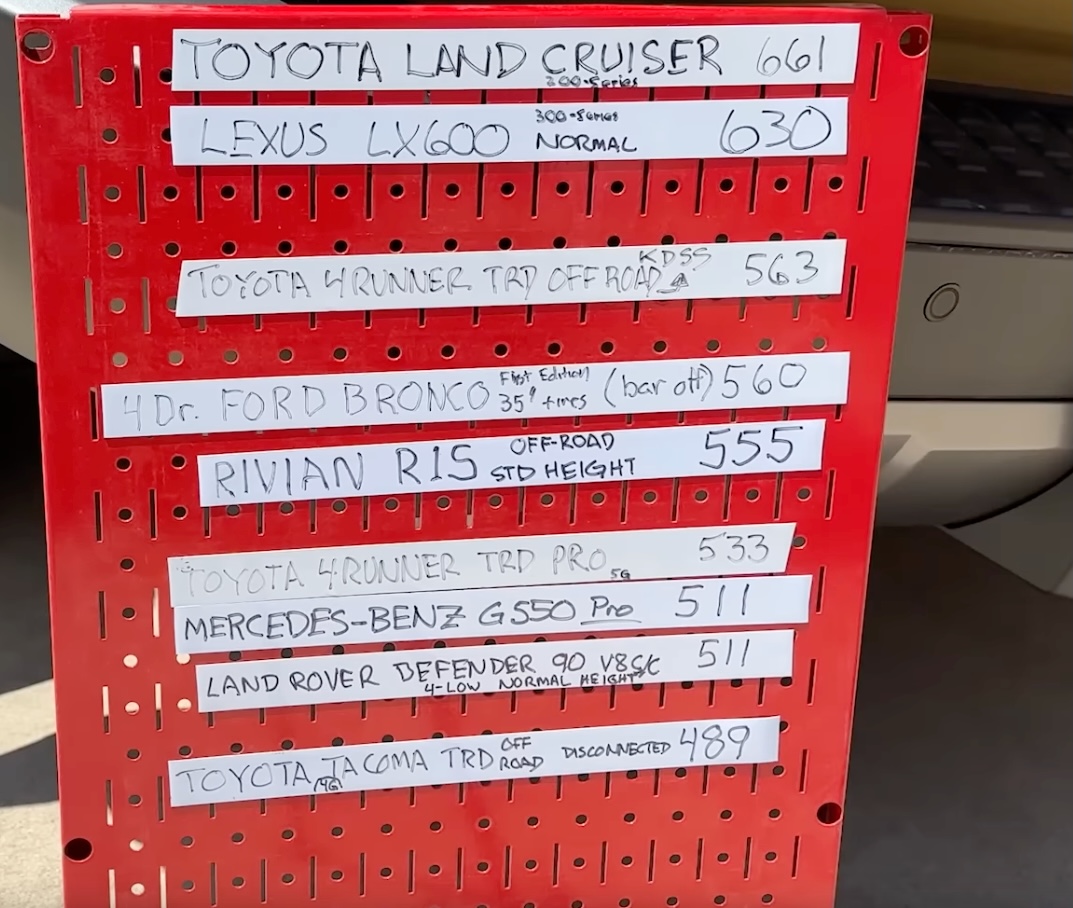 TOYOTA LAND CRUISER 200-Series 661
LEXUS LX600 300-Series NORMAL 630
TOYOTA 4RUNNER TRD OFF ROAD KDSS 563
4 Dr. FORD BRONCO First Edition 35" tires (bar off) 560
RIVIAN R1S OFF-ROAD STD HEIGHT 555
TOYOTA 4RUNNER TRD PRO 5G 533
MERCEDES-BENZ G550 Pro 511
LAND ROVER DEFENDER 90 V8 S/C 4-LOW NORMAL HEIGHT 511
TOYOTA TACOMA TRD OFF ROAD DISCONNECTED 489